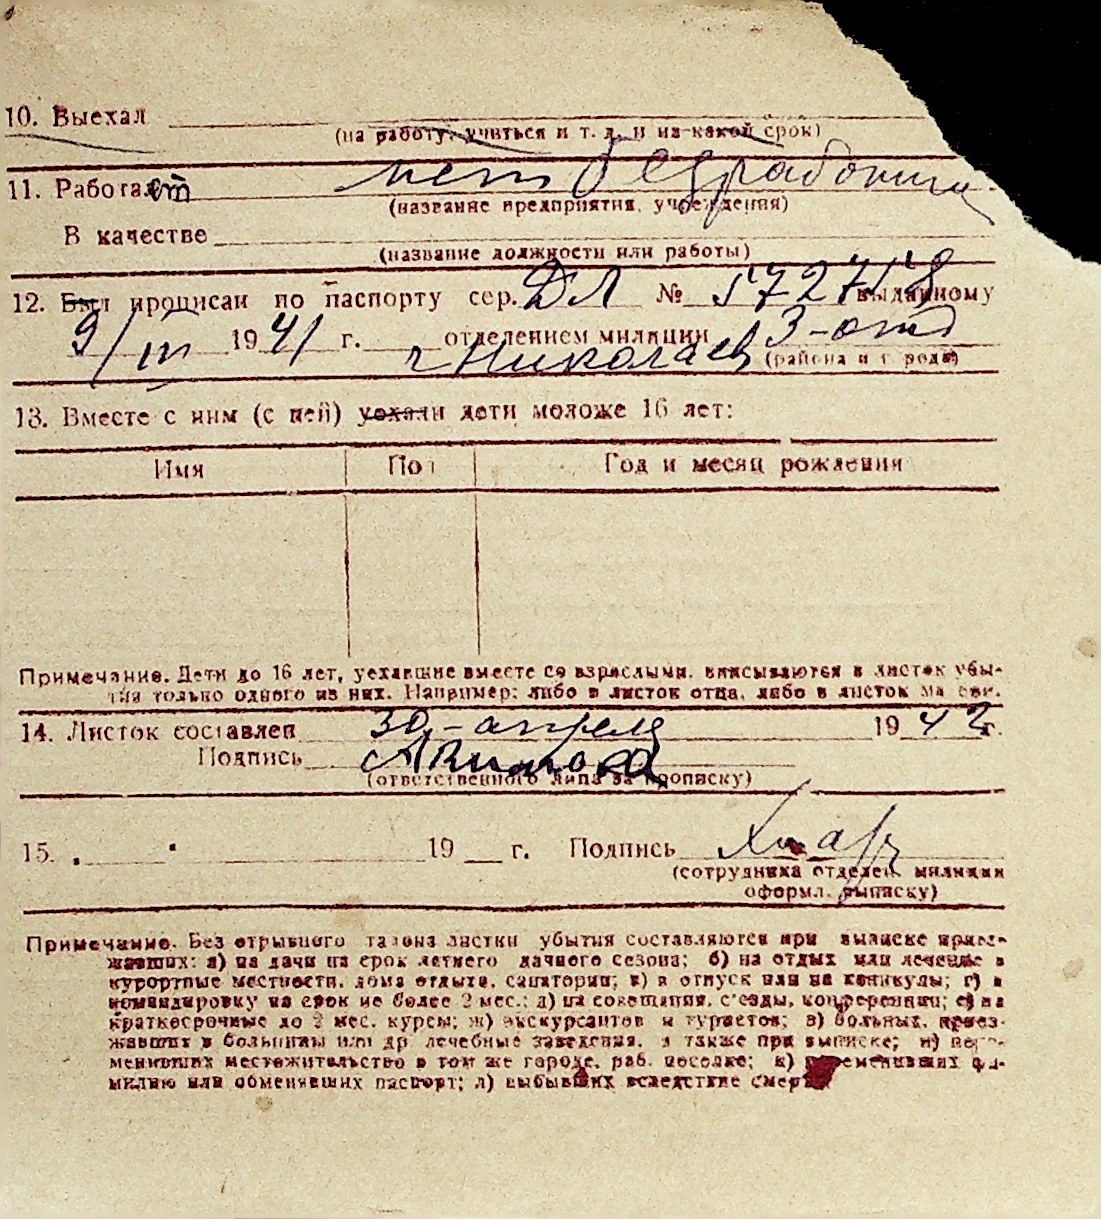 10. Выехал
(на работу, учиться и т. д. и на какой срок)
11. Работает нет безработний
(название предприятия, учреждения)
В качестве
(название должности или работы)
12. Был прописан по паспорту сер. ДЛ № 572718 выданному
9/III 1941 г. отделением милиции 3-отд
г Николаев (района и города)
13. Вместе с ним (с ней) уехали дети моложе 16 лет:
Имя Пол Год и месяц рождения
Примечание. Дети до 16 лет, уехавшие вместе со взрослыми, вписываются в листок убы-
тия только одного из них. Например: либо в листок отца, либо в листок матери.
14. Листок составлен 30-апреля 1942 г.
Подпись Акимова
(ответственного лица за прописку)
15. 19 г. Подпись
(сотрудника отделен. милиции
оформл. выписку)
Примечание. Без отрывного талона листки убытия составляются при выписке приез-
жавших: а) на дачи на срок летнего дачного сезона; б) на отдых или лечение в
курортные местности, дома отдыха, санатории; в) в отпуск или на каникулы; г) в
командировку на срок не более 2 мес.; д) на совещания, с'езды, конференции; е) на
краткосрочные до 2 мес. курсы; ж) экскурсантов и туристов; з) больных, приез-
жавших в больницы или др лечебные заведения, а также при выписке; и) пере-
менивших местожительство в том же городе, раб. поселке; к) переменивших фа-
милию или обменявших паспорт; л) выбывших вследствие смерти